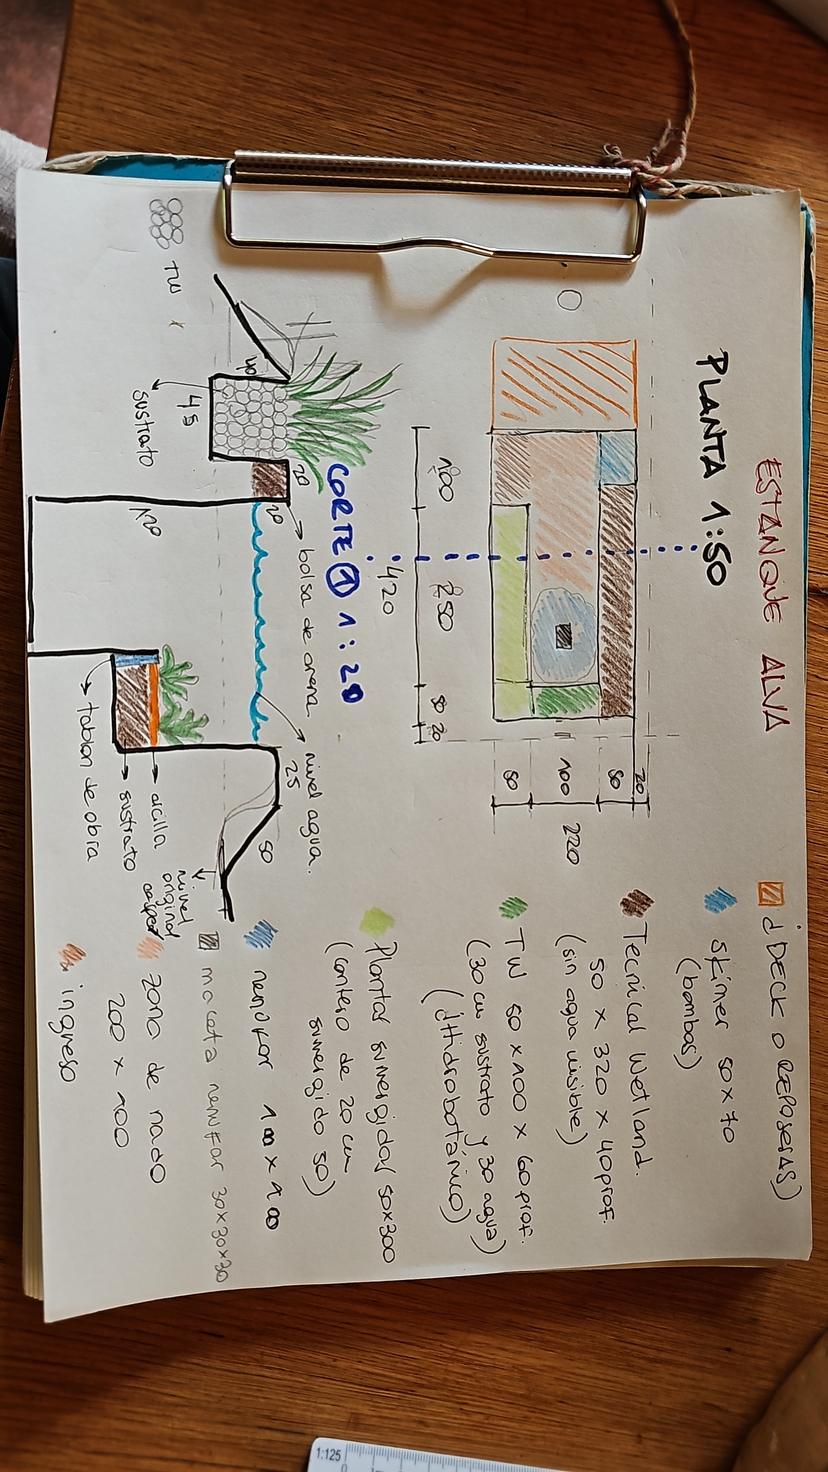 ESTANQUE ALVA
PLANTA 1:50
20
50
100
50
220
100
250
50
20
420
CORTE ① 1:20
TW
40
45
sustrato
20
20
120
bolsa de arena
nivel agua.
25
50
arcilla
sustrato
tablon de obra
nivel
original
DECK O REPOSERAS)
Skimer 50x70
(bombas)
Tecnical Wetland.
50 x 320 x 40 prof.
(sin agua visible)
TW 50 x 100 x 60 prof.
(30 cm sustrato y 30 agua)
Plantas sumergidas 50x300
(cantero de 20 cm
sumergido 50)
nenufar 100 x 100
maceta nenufar 30x30x30
zona de nado
200 x 100
ingreso
1:125
0